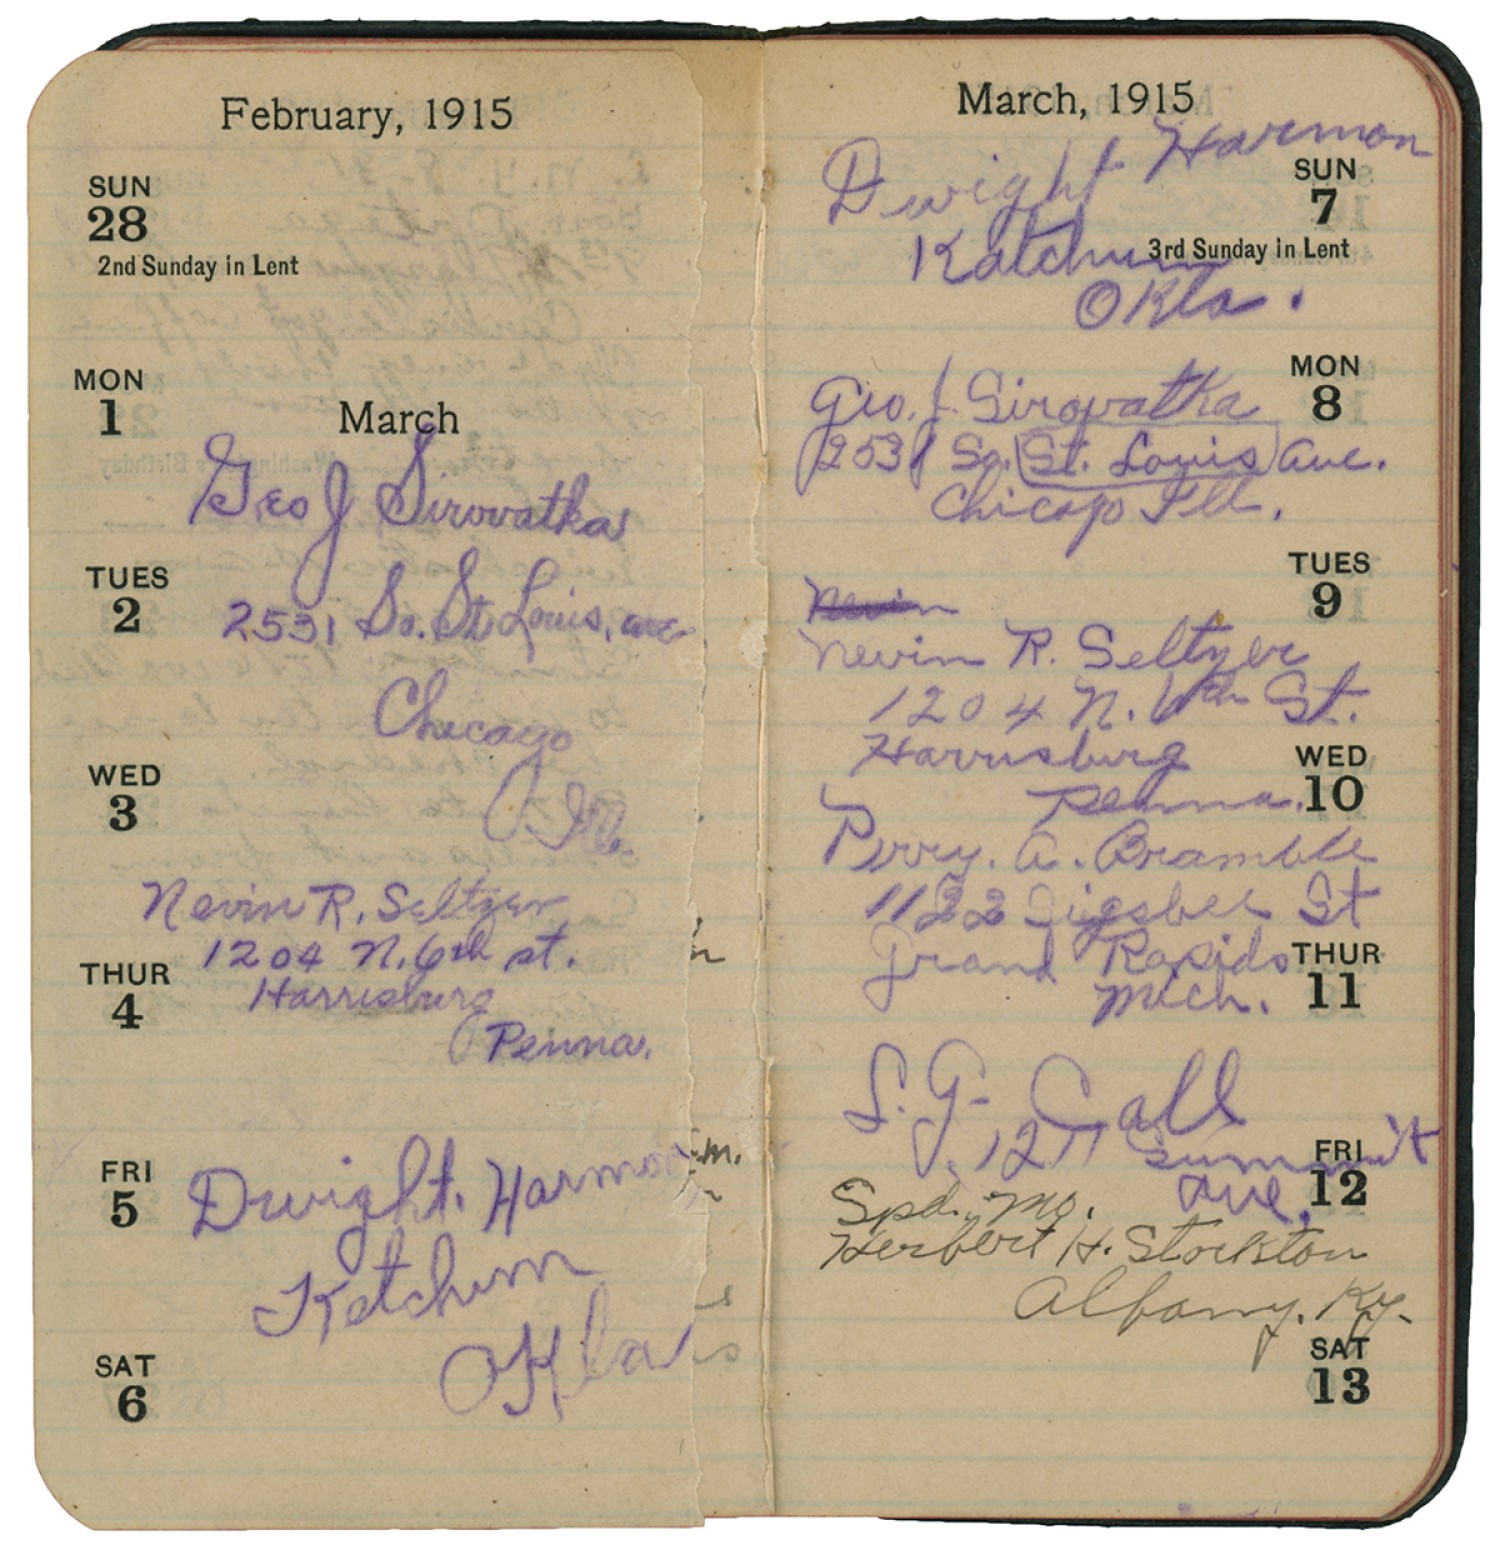 February, 1915
SUN
28
2nd Sunday in Lent
MON
1
March
Geo J Sirovatka
TUES
2
2531 So. St Louis, ave
Chicago
Ill.
WED
3
Nevin R. Seltzer
1204 N. 6th st.
THUR
4
Harrisburg
Penna.
FRI
5
Dwight. Harmon
Ketchum
Okla
SAT
6
m.
March, 1915
Dwight Harmon
SUN
7
Katchum
3rd Sunday in Lent
Okla.
MON
8
Geo. J. Sirovatka
2531 So. St. Louis ave.
Chicago Ill.
TUES
9
Nevin
Nevin R. Seltzer
1204 N. 6th St.
Harrisburg
WED
10
Penna.
Perry. A. Bramble
1122 Sigsbee St
Grand Rapids
THUR
11
Mich.
S. G. Call
1211 Summit
FRI
12
ave.
Spd. Mo.
Herbert H. Stockton
Albany. Ky.
SAT
13